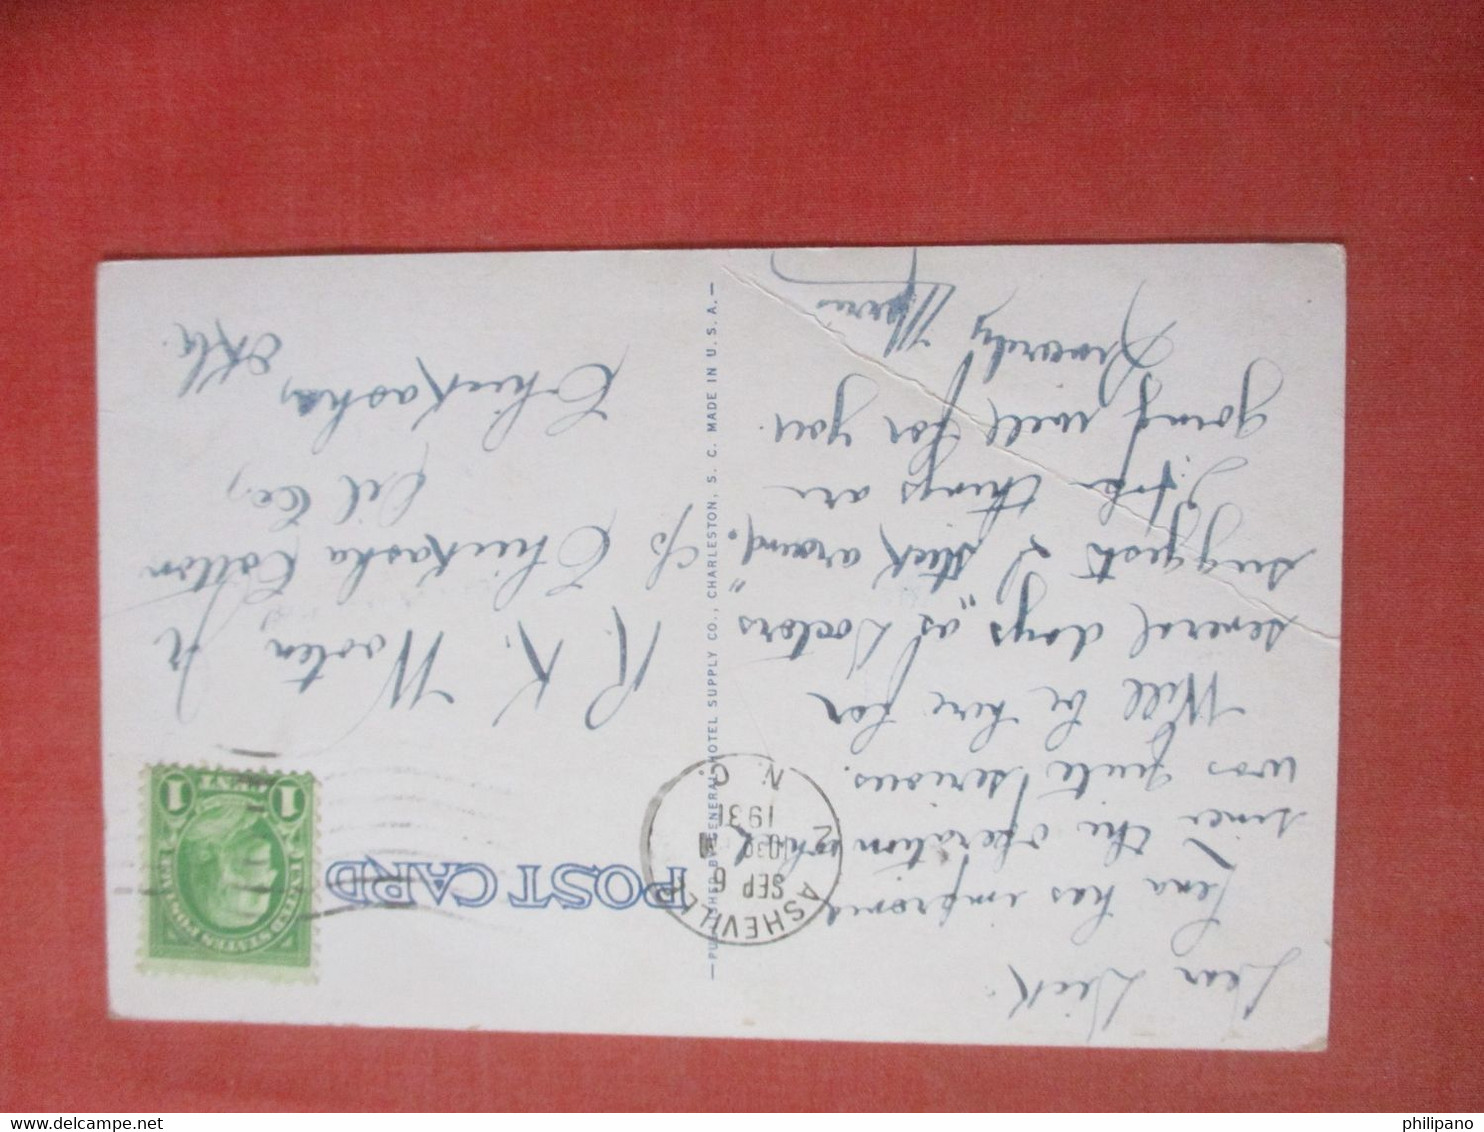 POST CARD
ASHEVILLE
SEP 6
1030
1931
N. C.
2
UNITED STATES POSTAGE
1 1
Dear Dick.
Lena has improved
since the operation which
was quite serious.
Will be here for
several days, as Doctors
suggests I "stick around."
Hope things are
going well for you.
Sincerely
R. K. Wooten, Jr
c/o Chickasha Cotton
Oil Co.,
Chickasha,
Okla.
—PUBLISHED BY GENERAL HOTEL SUPPLY CO., CHARLESTON, S. C. MADE IN U. S. A.—
philipano
delcampe.com